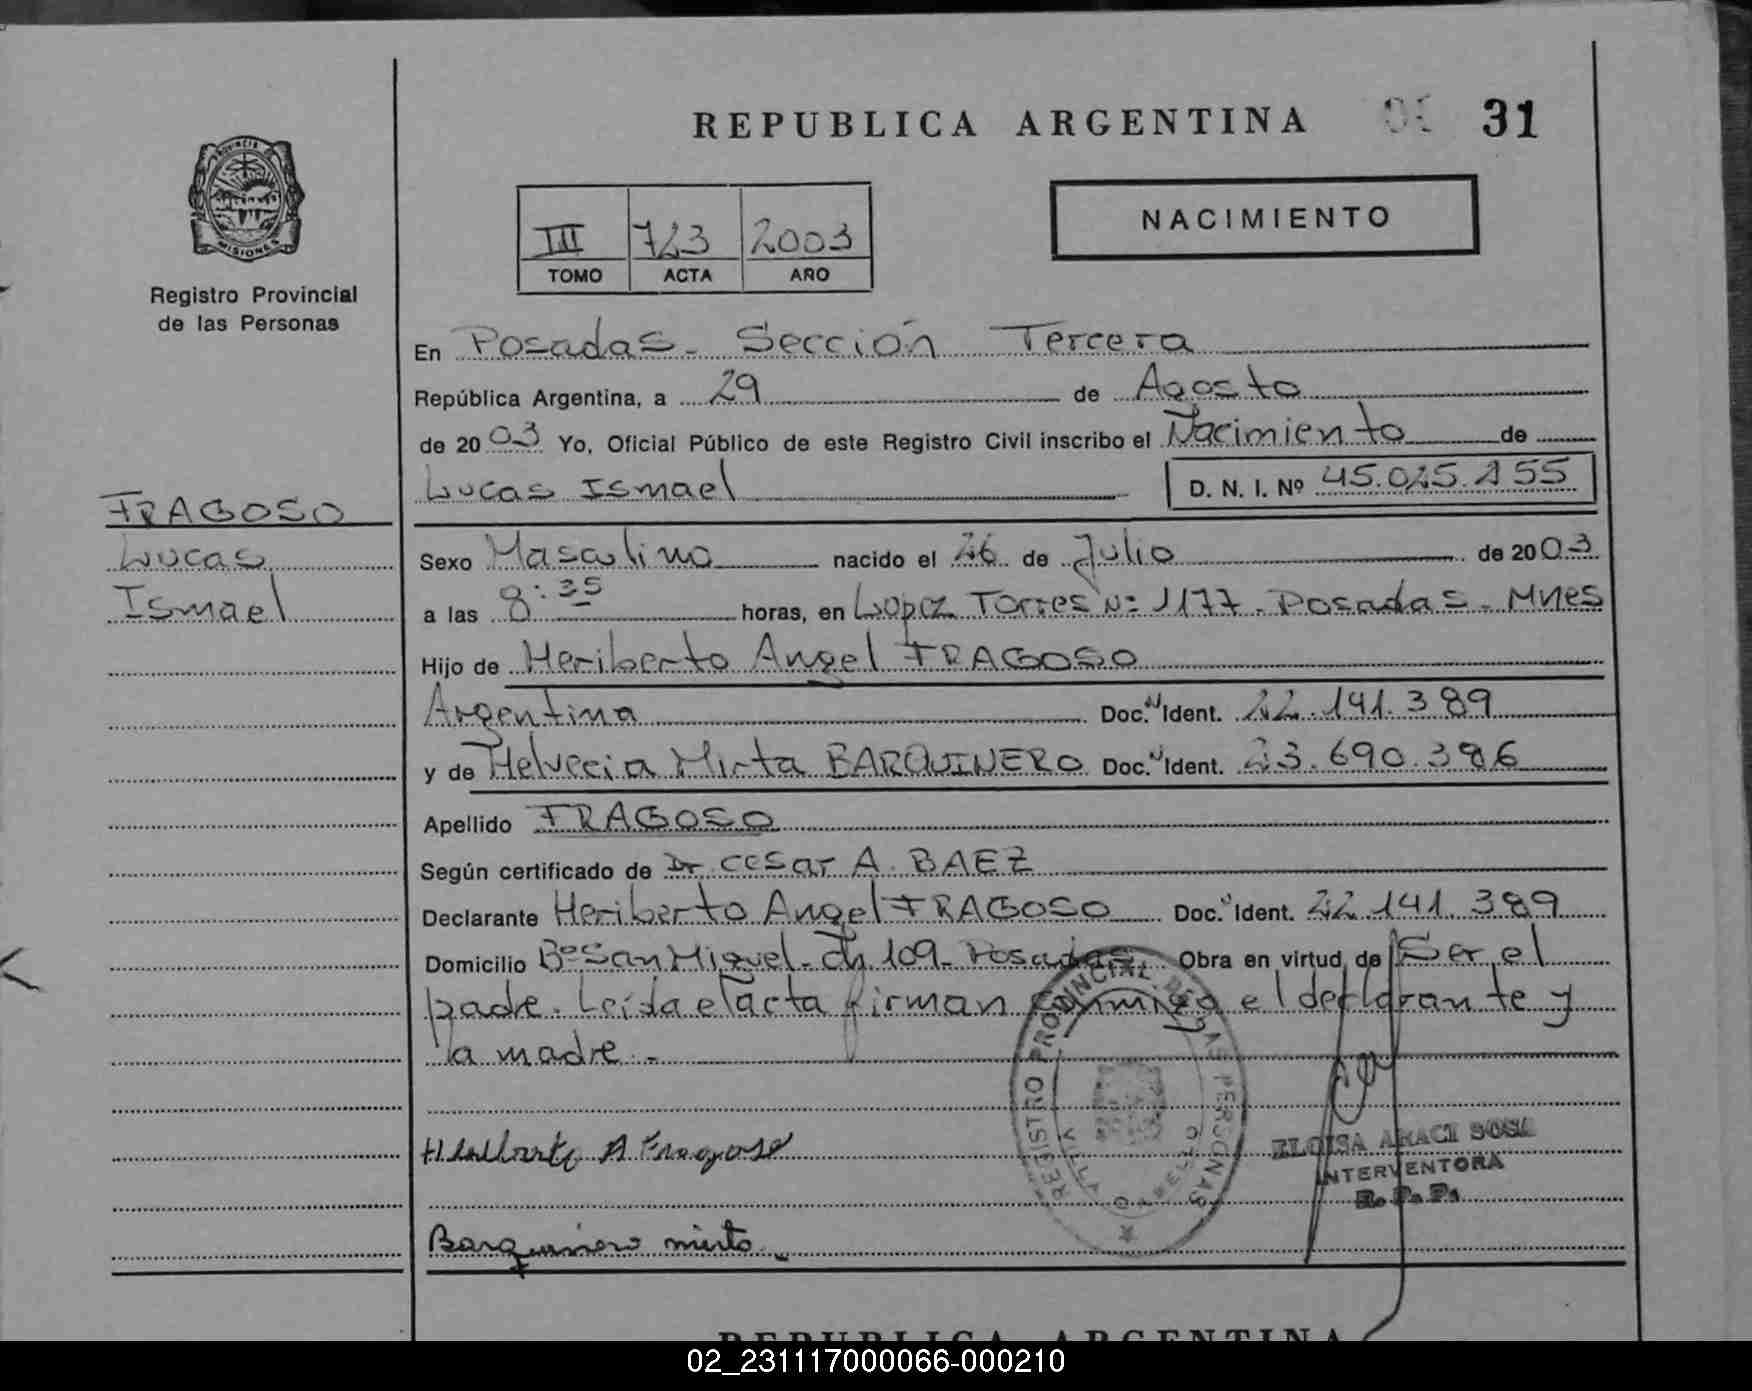 REPUBLICA ARGENTINA 31
PROVINCIA DE
MISIONES
Registro Provincial
de las Personas
III 723 2003
TOMO ACTA AÑO
NACIMIENTO
En Posadas - Sección Tercera
República Argentina, a 29 de Agosto
de 2003 Yo, Oficial Público de este Registro Civil inscribo el Nacimiento de
Lucas Ismael D. N. I. Nº 45.025.155
FRAGOSO
Lucas
Ismael
Sexo Masculino nacido el 26 de Julio de 2003
a las 8:35 horas, en Lopez Torres Nº 1177. Posadas - Mnes
Hijo de Heriberto Angel FRAGOSO
Argentina Doc. Ident. 22.141.389
y de Helvecia Mirta BARQUINERO Doc. Ident. 23.690.386
Apellido FRAGOSO
Según certificado de Dr. Cesar A. BAEZ
Declarante Heriberto Angel FRAGOSO Doc. Ident. 22.141.389
Domicilio Bº San Miguel - Ch 109 - Posadas Obra en virtud de Ser el
padre. Leída el acta firman conmigo el declarante y
la madre. -
REGISTRO PROVINCIAL DE LAS PERSONAS
VILLA
Heriberto A Fragoso
ELOISA ARACI SOSA
INTERVENTORA
R. P. P.
Barquinero mirta
REPUBLICA ARGENTINA
02_231117000066-000210